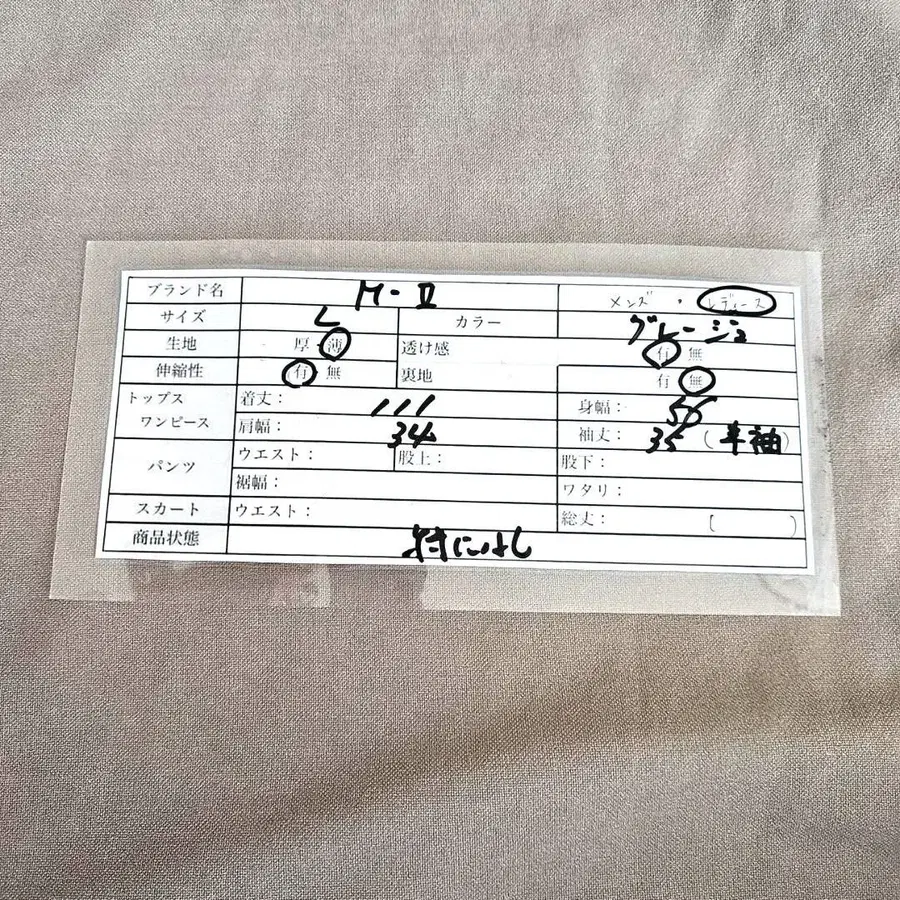 ブランド名 M-Ⅱ メンズ ・ レディース
サイズ L カラー グレージュ
生地 厚・薄 透け感 有 無
伸縮性 有 無 裏地 有 無
トップス 着丈: 111 身幅: 56
ワンピース 肩幅: 34 袖丈: 35 (半袖)
パンツ ウエスト: 股上: 股下:
裾幅: ワタリ:
スカート ウエスト: 総丈: [ )
商品状態 特になし